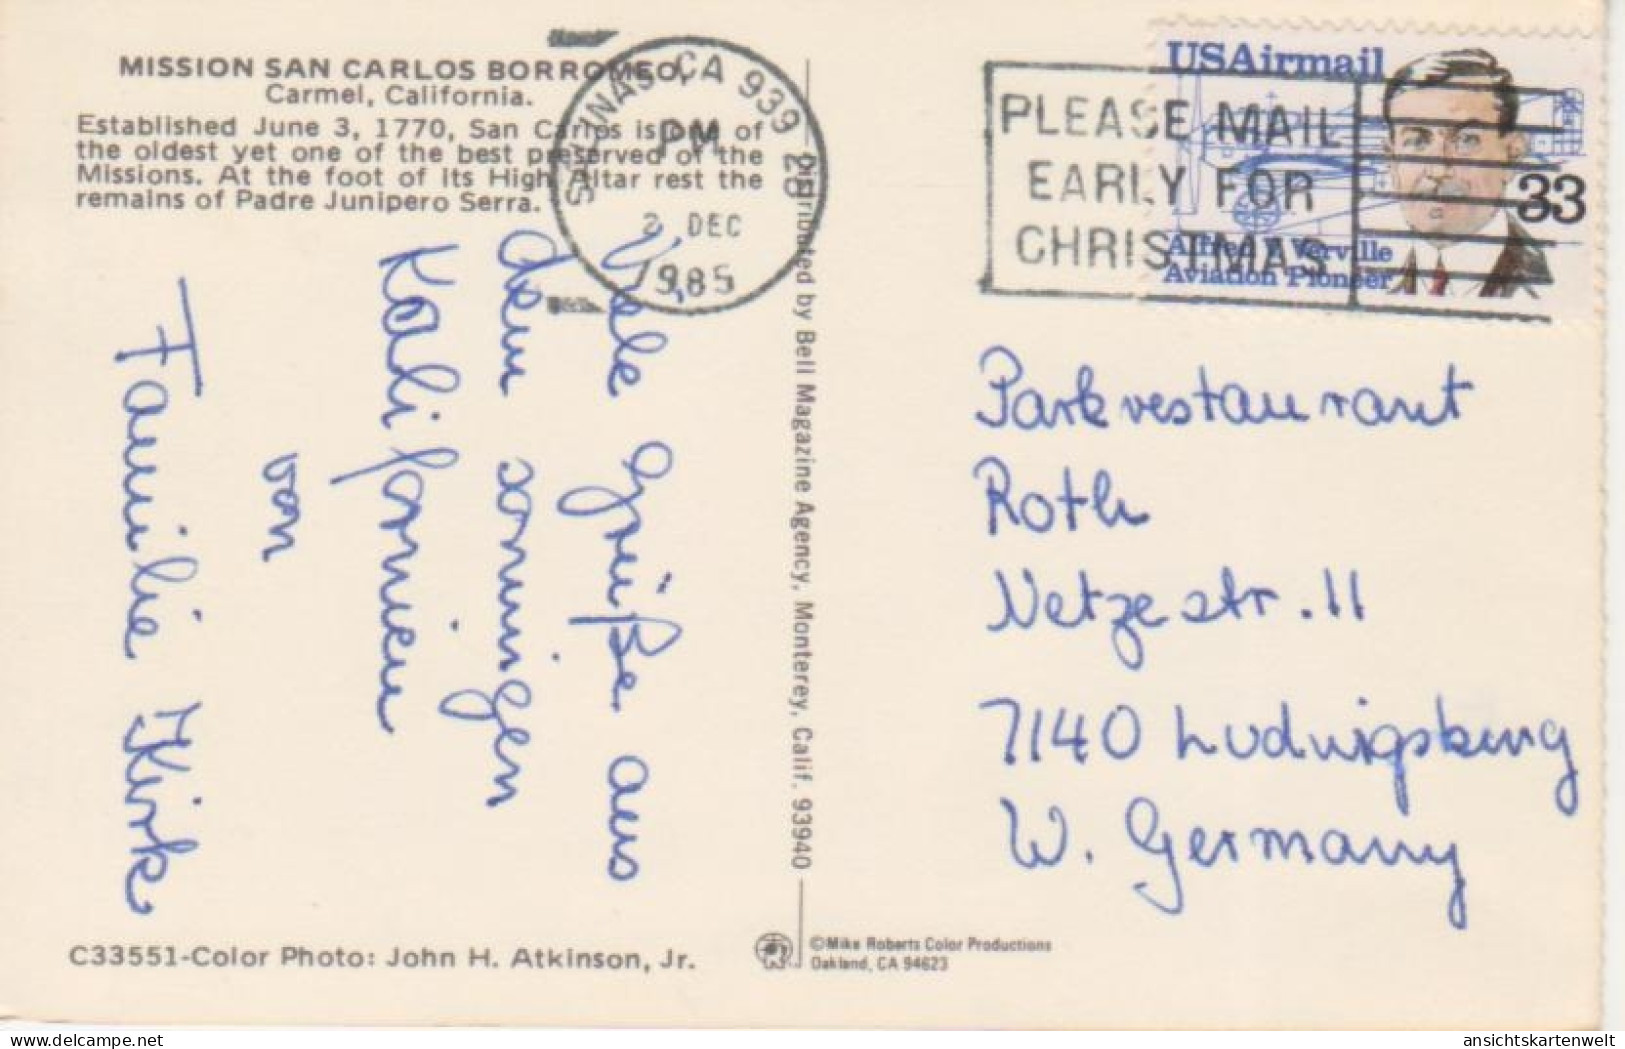 MISSION SAN CARLOS BORROMEO,
Carmel, California.
Established June 3, 1770, San Carlos is one of
the oldest yet one of the best preserved of the
Missions. At the foot of its High Altar rest the
remains of Padre Junipero Serra.
SALINAS, CA 939
PM
2 DEC
1985
PLEASE MAIL
EARLY FOR
CHRISTMAS
USAirmail
33
Alfred V. Verville
Aviation Pioneer
Viele Grüße aus
dem sonnigen
Kalifornien
von
Familie Kirk
Distributed by Bell Magazine Agency, Monterey, Calif. 93940
Parkrestaurant
Roth
Netzestr. 11
7140 Ludwigsburg
W. Germany
C33551-Color Photo: John H. Atkinson, Jr.
©Mike Roberts Color Productions
Oakland, CA 94623
www.delcampe.net
ansichtskartenwelt